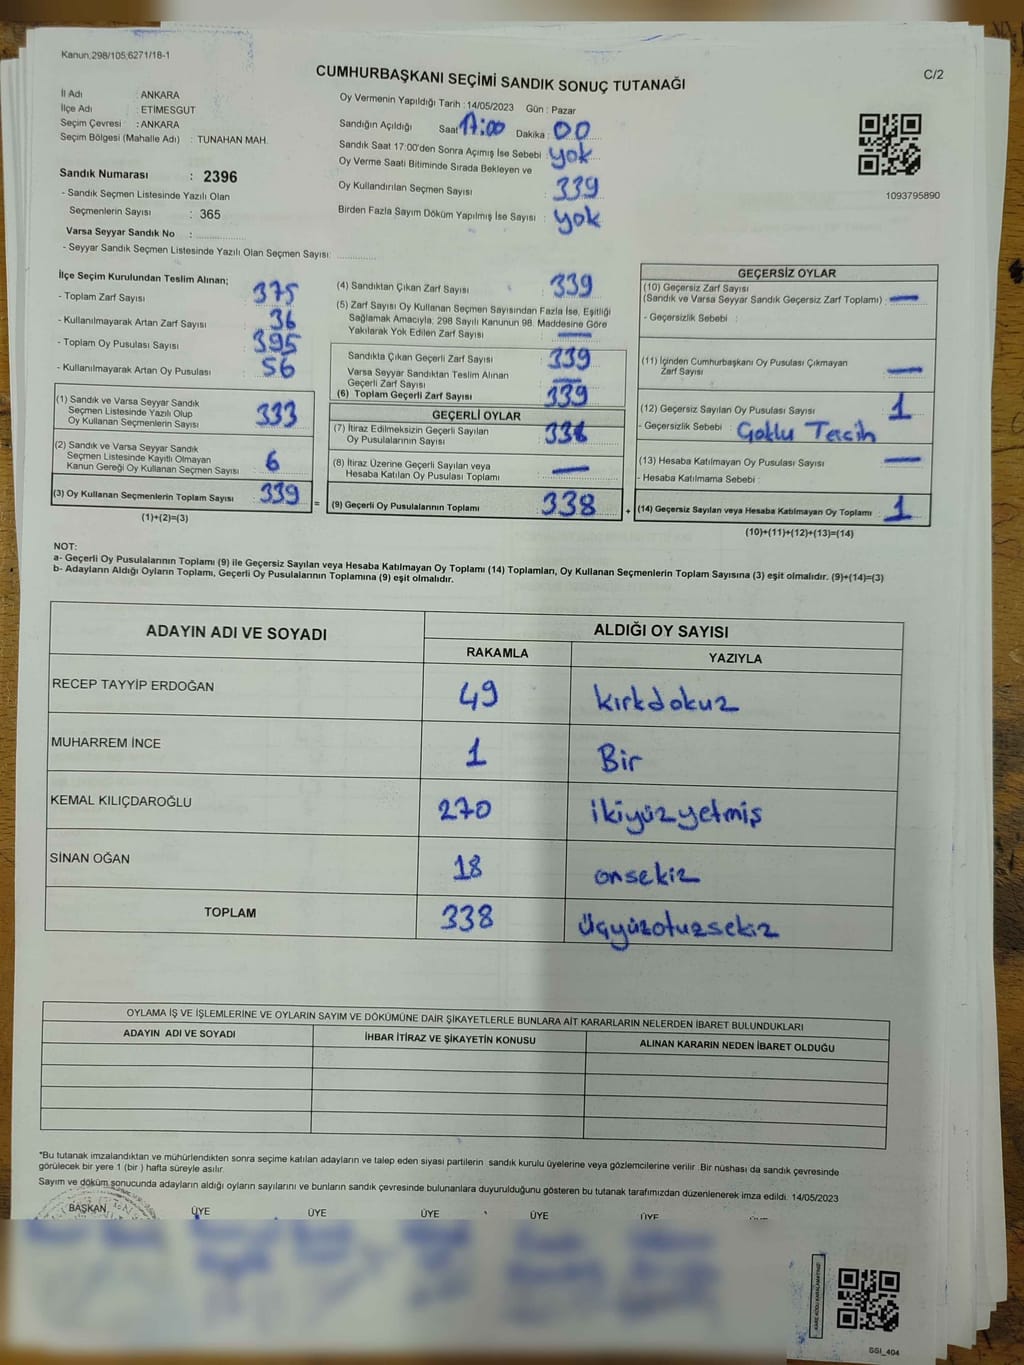 Kanun:298/105,6271/18-1
C/2
CUMHURBAŞKANI SEÇİMİ SANDIK SONUÇ TUTANAĞI
İl Adı : ANKARA
İlçe Adı : ETİMESGUT
Seçim Çevresi : ANKARA
Seçim Bölgesi (Mahalle Adı) : TUNAHAN MAH.
Sandık Numarası : 2396
- Sandık Seçmen Listesinde Yazılı Olan
Seçmenlerin Sayısı : 365
Varsa Seyyar Sandık No :
- Seyyar Sandık Seçmen Listesinde Yazılı Olan Seçmen Sayısı:
Oy Vermenin Yapıldığı Tarih :14/05/2023 Gün : Pazar
Sandığın Açıldığı Saat 17:00 Dakika : 00
Sandık Saat 17:00'den Sonra Açımış İse Sebebi : yok
Oy Verme Saati Bitiminde Sırada Bekleyen ve
Oy Kullandırılan Seçmen Sayısı : 339
Birden Fazla Sayım Döküm Yapılmış İse Sayısı : yok
1093795890
İlçe Seçim Kurulundan Teslim Alınan;
- Toplam Zarf Sayısı : 375
- Kullanılmayarak Artan Zarf Sayısı : 36
- Toplam Oy Pusulası Sayısı : 395
- Kullanılmayarak Artan Oy Pusulası : 56
(1) Sandık ve Varsa Seyyar Sandık
Seçmen Listesinde Yazılı Olup
Oy Kullanan Seçmenlerin Sayısı : 333
(2) Sandık ve Varsa Seyyar Sandık
Seçmen Listesinde Kayıtlı Olmayan
Kanun Gereği Oy Kullanan Seçmen Sayısı : 6
(3) Oy Kullanan Seçmenlerin Toplam Sayısı : 339
(1)+(2)=(3)
(4) Sandıktan Çıkan Zarf Sayısı : 339
(5) Zarf Sayısı Oy Kullanan Seçmen Sayısından Fazla İse, Eşitliği
Sağlamak Amacıyla, 298 Sayılı Kanunun 98. Maddesine Göre
Yakılarak Yok Edilen Zarf Sayısı : —
Sandıkta Çıkan Geçerli Zarf Sayısı : 339
Varsa Seyyar Sandıktan Teslim Alınan
Geçerli Zarf Sayısı : —
(6) Toplam Geçerli Zarf Sayısı : 339
GEÇERLİ OYLAR
(7) İtiraz Edilmeksizin Geçerli Sayılan
Oy Pusulalarının Sayısı : 338
(8) İtiraz Üzerine Geçerli Sayılan veya
Hesaba Katılan Oy Pusulası Toplamı : —
= (9) Geçerli Oy Pusulalarının Toplamı : 338
GEÇERSİZ OYLAR
(10) Geçersiz Zarf Sayısı
(Sandık ve Varsa Seyyar Sandık Geçersiz Zarf Toplamı) : —
- Geçersizlik Sebebi :
(11) İçinden Cumhurbaşkanı Oy Pusulası Çıkmayan
Zarf Sayısı : —
(12) Geçersiz Sayılan Oy Pusulası Sayısı : 1
- Geçersizlik Sebebi : Çoklu Tercih
(13) Hesaba Katılmayan Oy Pusulası Sayısı : —
- Hesaba Katılmama Sebebi :
+ (14) Geçersiz Sayılan veya Hesaba Katılmayan Oy Toplamı : 1
(10)+(11)+(12)+(13)=(14)
NOT:
a- Geçerli Oy Pusulalarının Toplamı (9) ile Geçersiz Sayılan veya Hesaba Katılmayan Oy Toplamı (14) Toplamları, Oy Kullanan Seçmenlerin Toplam Sayısına (3) eşit olmalıdır. (9)+(14)=(3)
b- Adayların Aldığı Oyların Toplamı, Geçerli Oy Pusulalarının Toplamına (9) eşit olmalıdır.
ADAYIN ADI VE SOYADI ALDIĞI OY SAYISI
RAKAMLA YAZIYLA
RECEP TAYYİP ERDOĞAN 49 kırkdokuz
MUHARREM İNCE 1 Bir
KEMAL KILIÇDAROĞLU 270 ikiyüzyetmiş
SİNAN OĞAN 18 onsekiz
TOPLAM 338 üçyüzotuzsekiz
OYLAMA İŞ VE İŞLEMLERİNE VE OYLARIN SAYIM VE DÖKÜMÜNE DAİR ŞİKAYETLERLE BUNLARA AİT KARARLARIN NELERDEN İBARET BULUNDUKLARI
ADAYIN ADI VE SOYADI İHBAR İTİRAZ VE ŞİKAYETİN KONUSU ALINAN KARARIN NEDEN İBARET OLDUĞU
*Bu tutanak imzalandıktan ve mühürlendikten sonra seçime katılan adayların ve talep eden siyasi partilerin sandık kurulu üyelerine veya gözlemcilerine verilir. Bir nüshası da sandık çevresinde
görülecek bir yere 1 (bir ) hafta süreyle asılır.
Sayım ve döküm sonucunda adayların aldığı oyların sayılarını ve bunların sandık çevresinde bulunanlara duyurulduğunu gösteren bu tutanak tarafımızdan düzenlenerek imza edildi. 14/05/2023
BAŞKAN ÜYE ÜYE ÜYE ÜYE ÜYE
SSI_404